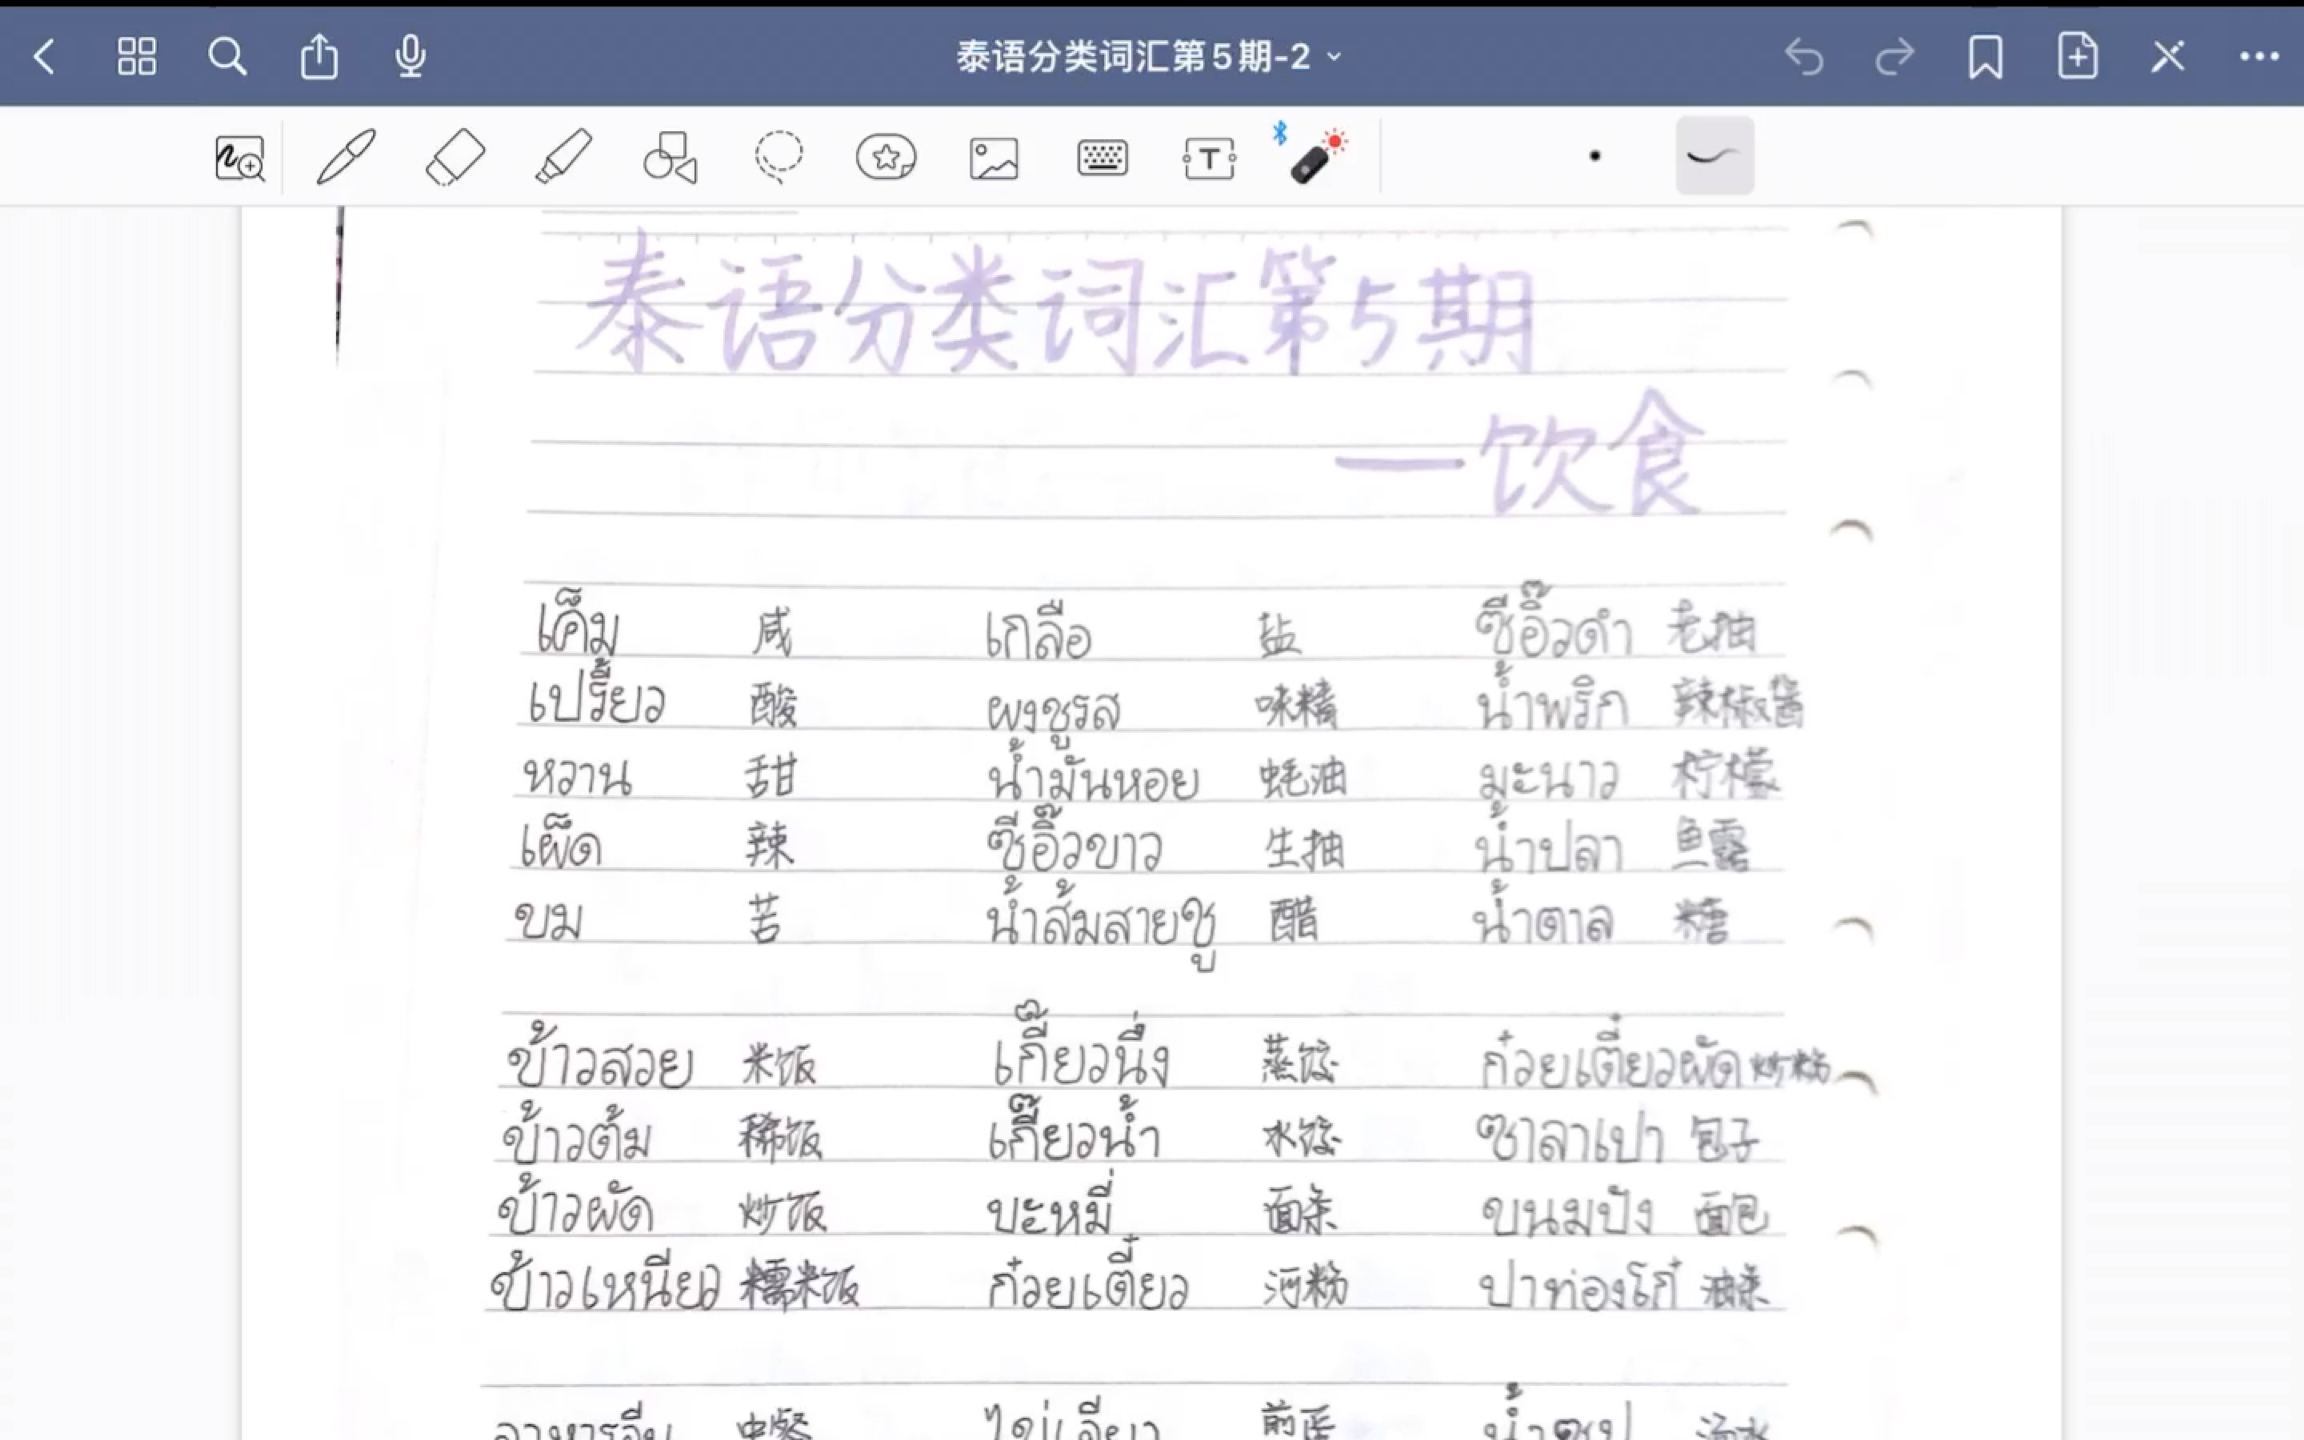 泰语分类词汇第5期-2
泰语分类词汇第5期
—饮食
เค็ม 咸 เกลือ 盐 ซีอิ๊วดำ 老抽
เปรี้ยว 酸 ผงชูรส 味精 น้ำพริก 辣椒酱
หวาน 甜 น้ำมันหอย 蚝油 มะนาว 柠檬
เผ็ด 辣 ซีอิ๊วขาว 生抽 น้ำปลา 鱼露
ขม 苦 น้ำส้มสายชู 醋 น้ำตาล 糖
ข้าวสวย 米饭 เกี๊ยวนึ่ง 蒸饺 ก๋วยเตี๋ยวผัด 炒粉
ข้าวต้ม 稀饭 เกี๊ยวน้ำ 水饺 ซาลาเปา 包子
ข้าวผัด 炒饭 บะหมี่ 面条 ขนมปัง 面包
ข้าวเหนียว 糯米饭 ก๋วยเตี๋ยว 河粉 ปาท่องโก๋ 油条
อาหารจีน 中餐 ไข่เจียว 煎蛋 น้ำซุป 汤水